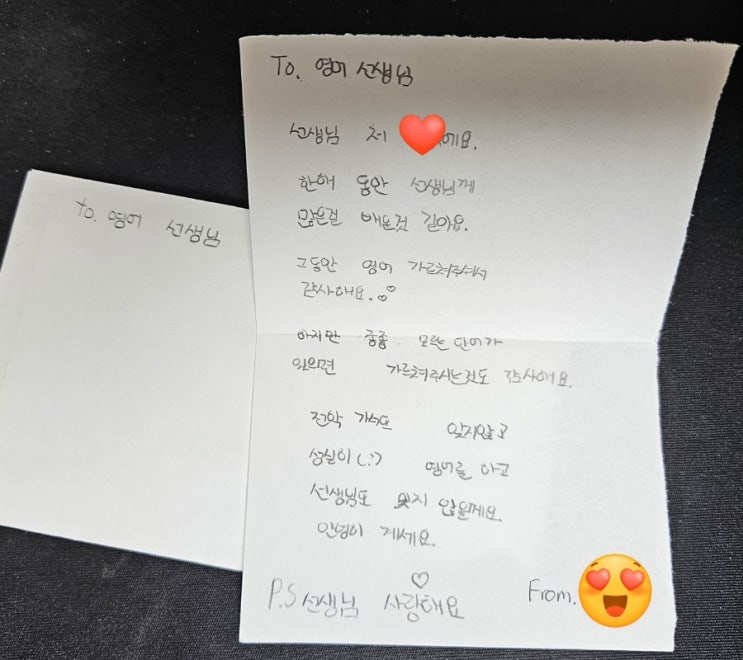 to. 영어 선생님
To. 영어 선생님
선생님 저 에요.
한해 동안 선생님께
많은걸 배운것 같아요.
그동안 영어 가르쳐주셔서
감사해요.
하지만 중종, 모르는 단어가
있으면 가르쳐주시는것도 감사해요.
전학 가서도 잊지않고
성실이(:) 영어를 하고
선생님도 잊지 않을께요.
안녕이 계세요.
P.S 선생님 사랑해요
From.